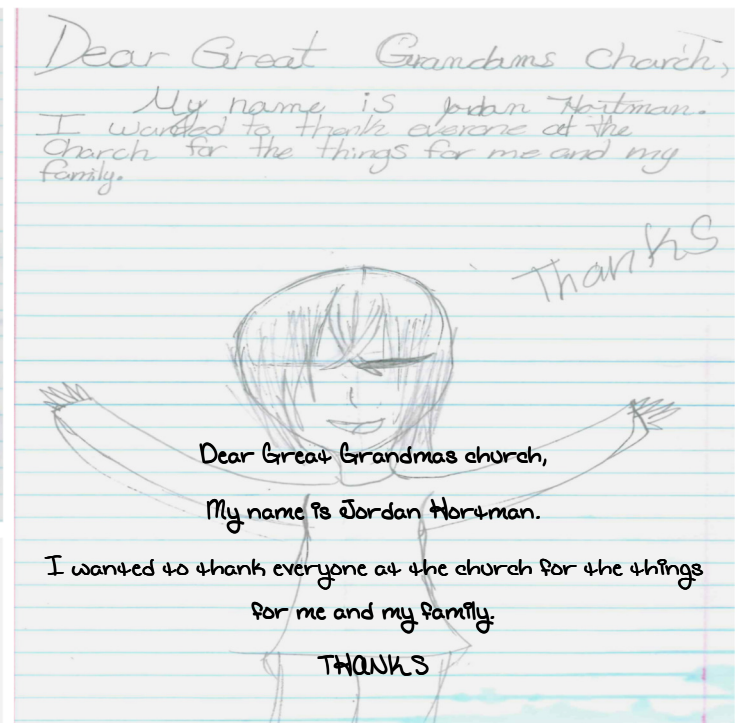 Dear Great Grandams church,
My name is Jordan Hortman.
I wanted to thank everone at the
Church for the things for me and my
family.
Thanks
Dear Great Grandmas church,
My name is Jordan Hortman.
I wanted to thank everyone at the church for the things
for me and my family.
THANKS